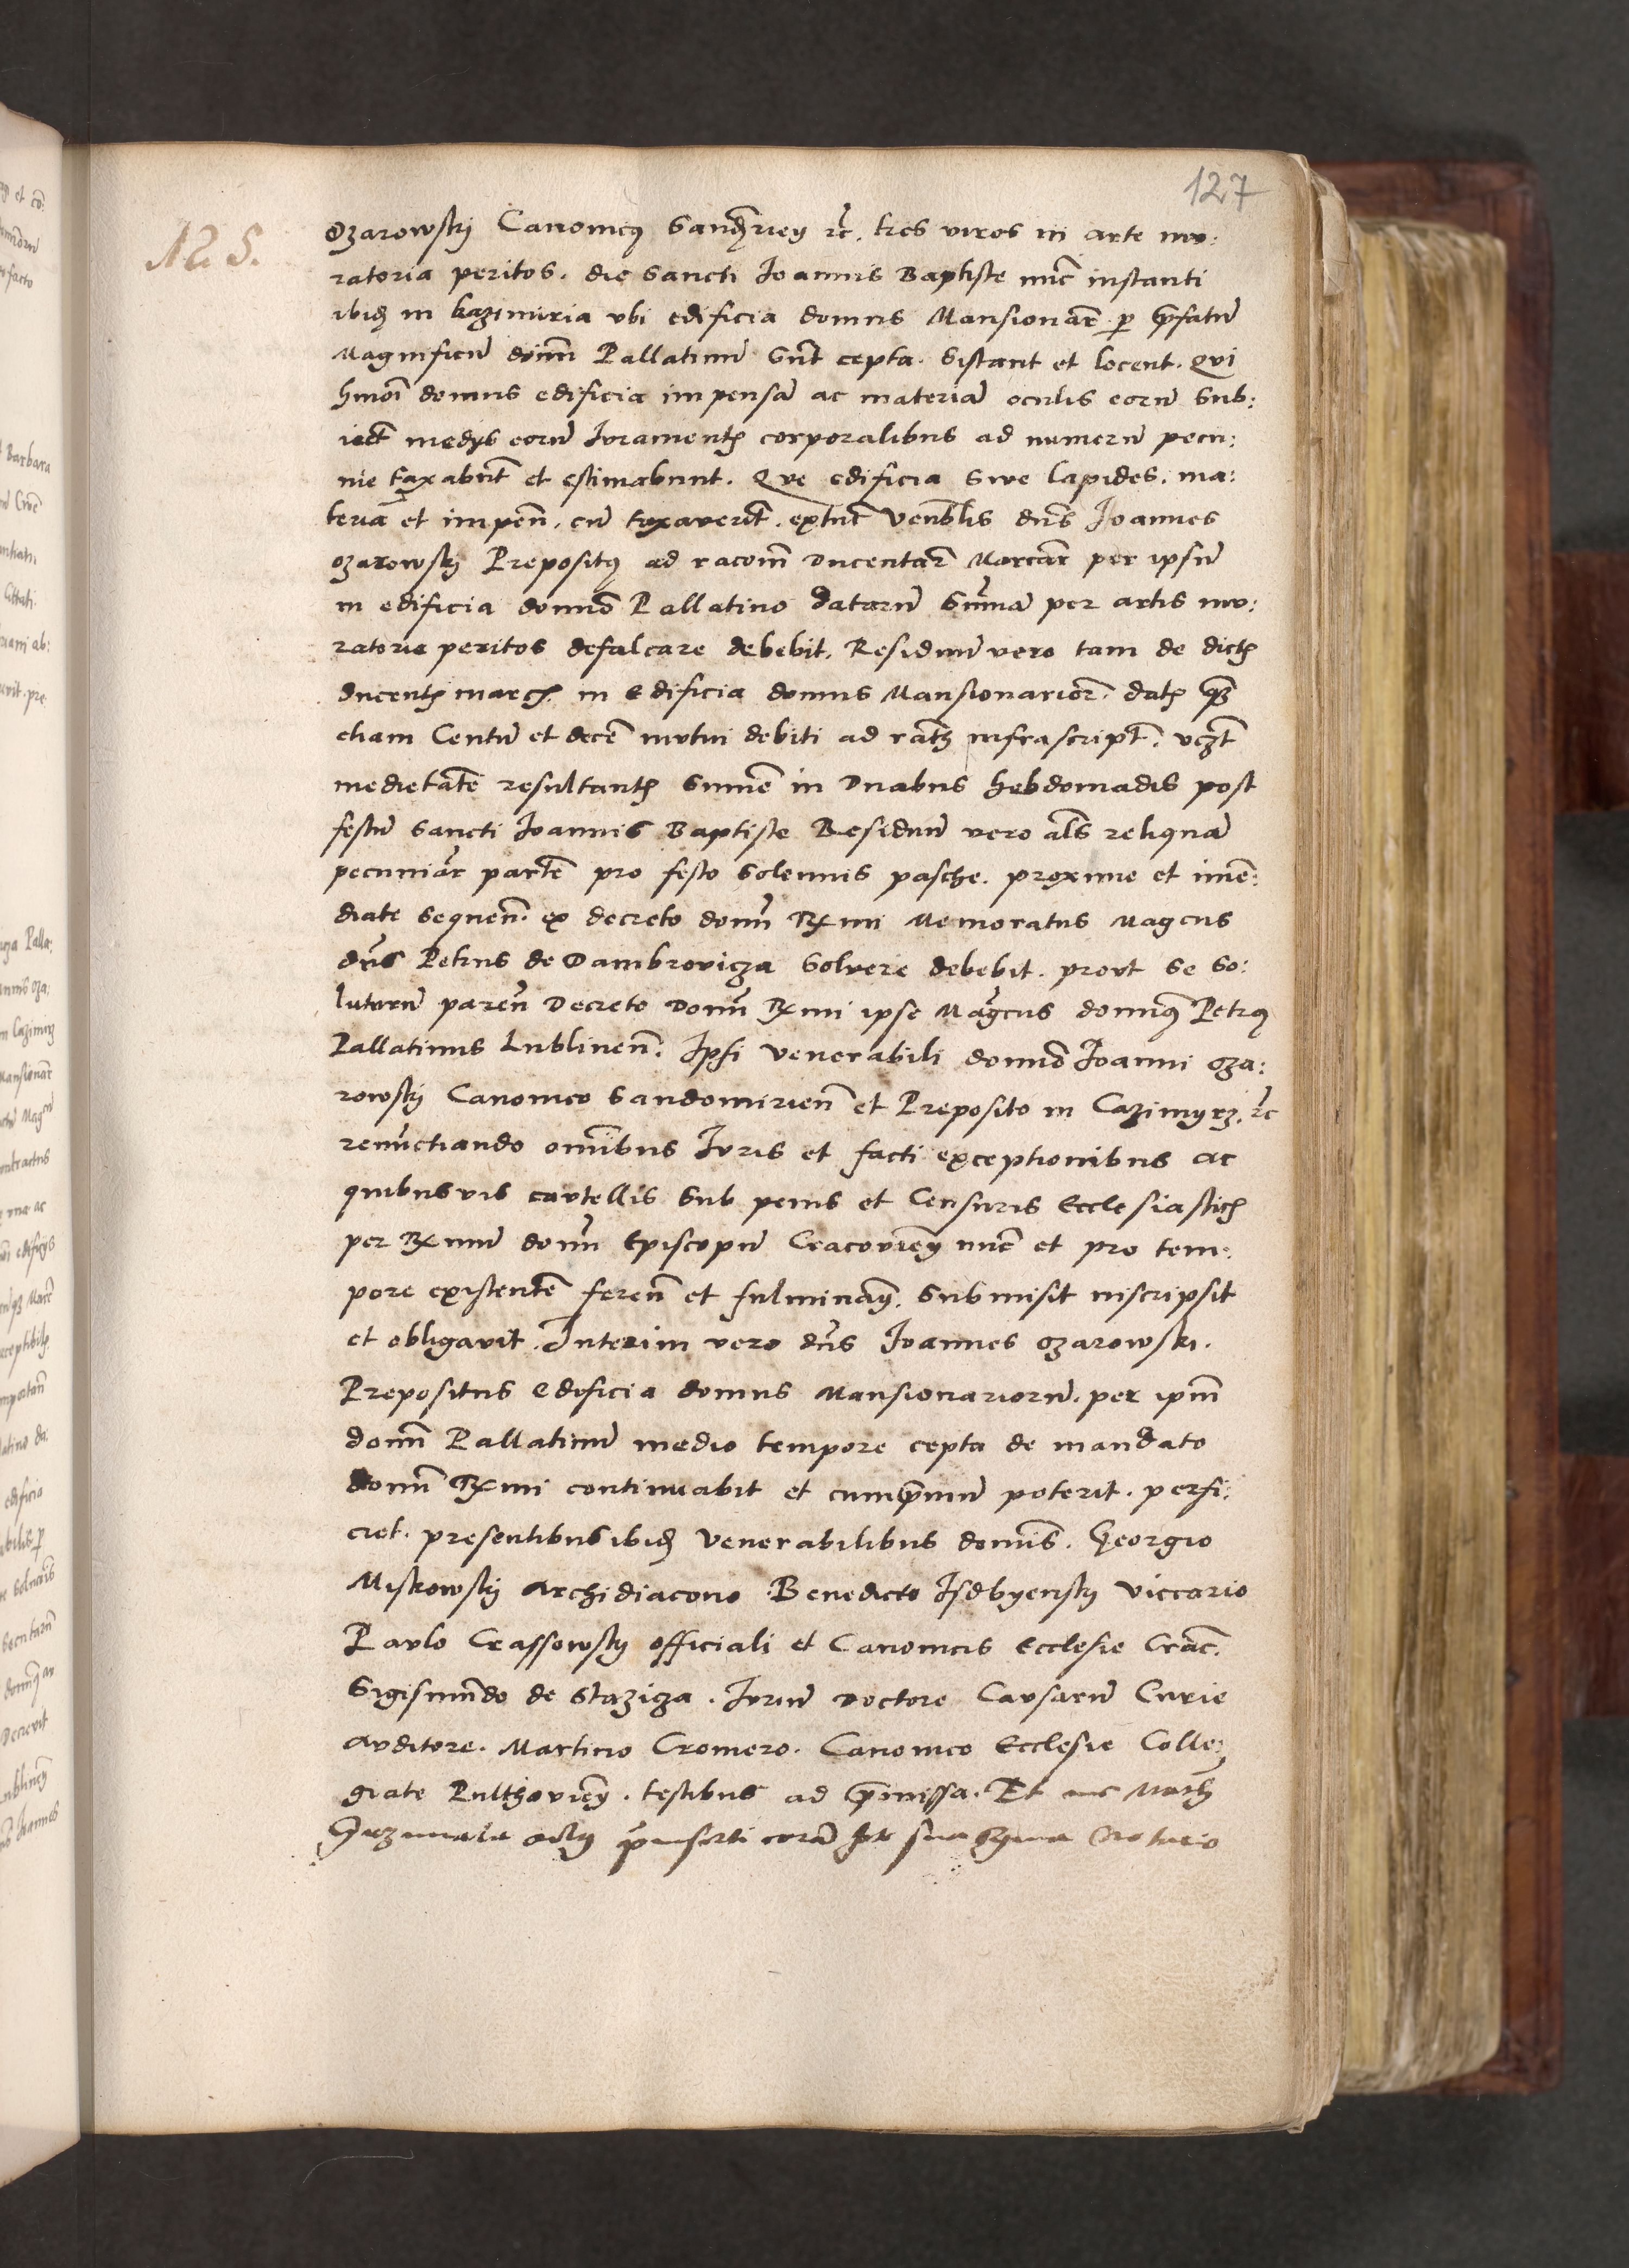 127
N. S.
Ozarowskÿ Canonicꝰ Sandomirień ꝛc̃. tres viros in arte mu:
ratoria peritos. die Sancti Ioannis Baptiste nūc instanti
ibidꝫ in Kazimiria vbi edificia domus Mansionar̃ ꝑ p̃fatū
Magnificū dn̄m Pallatinū sūt cepta. Sistant et locent. Qui
hmōi domus edificia impensā ac materiā oculis eorū sub:
iect̃ medÿs eorū Iuramentꝭ corporalibus ad numerū pecu:
nie taxabūt et estimabunt. Que edificia sive lapides. ma:
teriā et impeñ. cū taxaverīt. extūc Venᵇlis dn̄s Ioannes
Ozarowskÿ Prepositꝰ ad racōm Ducentar̃ Marcar̃ per ipsū
in edificia domīo Pallatino datarū Sūmā per artis mu:
ratorie peritos defalcare debebit. Residuū vero tam de dictꝭ
ducentꝭ marcꝭ. in edificia domus Mansionarior̃. datꝭ q̃ꝫ
etiam Centū et decē mutui debiti ad ratāꝫ infrascript̃. vcꝫt
medietatē resultantꝭ Sūme in Duabus hebdomadis post
festū Sancti Ioannis Baptiste Residuū vero als̃ reliquā
pecuniar̃ partē pro festo Solennis pasche. proxime et ime:
diate sequeñ. ex decreto domī Rxmi Memoratus Magcus
dn̄s Petrus de Dambrovicza Solvere debebit. prout se so:
luturū pareñ Decreto Domī Rxmi ipse Magcus domīꝰ Petrꝰ
Pallatinus Lublineñ. Ipsi venerabili domīo Ioanni Oza:
rowskÿ Canonico Sandomirieñ et Preposito in Cazimyrz. ꝛc
renūctiando omībus Iuris et facti exceptionibus ac
quibusvis cavtellis sub penis et Censuris Ecclesiasticꝭ
per Rxmū domī Episcopū Cracovieñ nūc et pro tem:
pore existentē fereñ et fulminań. submisit inscripsit
et obligavit. Interim vero dn̄s Ioannes Ozarowski.
Prepositus edificia domus Mansionariorū. per ipm̄
domī Pallatinū medio tempore cepta de mandato
domī Rxmi continuabit et cump̃mū poterit. perfi:
ciet. presentibus ibidꝫ Venerabilibus domīs. Georgio
Miskowskÿ Archidiacono Benedicto Isdbyenskÿ Viccario
Pavlo Crassowskÿ officiali et Canonicis Ecclesie Crac̃.
Sigismūdo de Stazicza. Iuriū Doctore Cavsarū Curie
Avditore. Martino Cromero. Canonico Ecclesie Colle:
giate Pultovień. testibus ad p̃missa. Et me Math̃